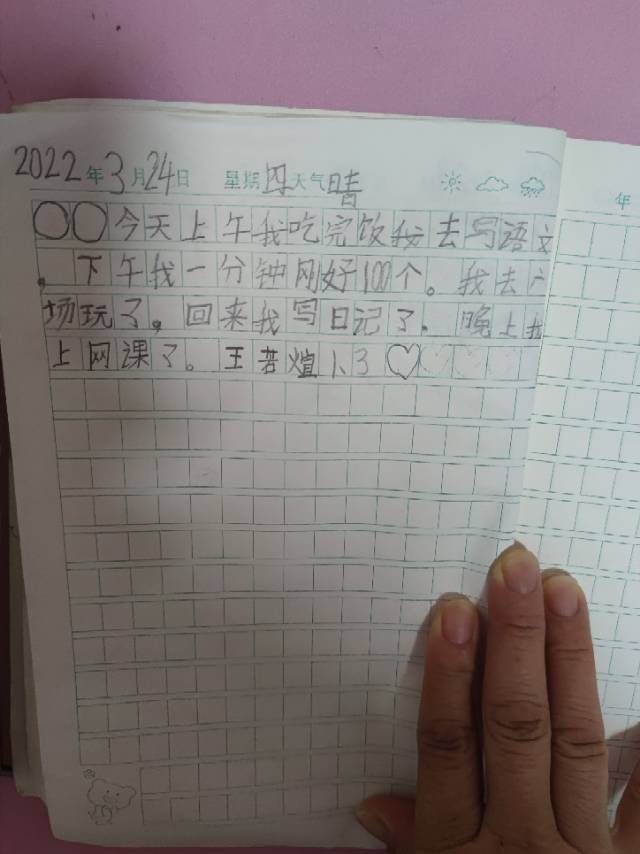 2022年3月24日 星期四天气晴
年
○○今天上午我吃完饭我去写语文
，下午我一分钟刚好100个。我去广
场玩了。回来我写日记了．晚上我
上网课了。王若煊 1、3 ♡